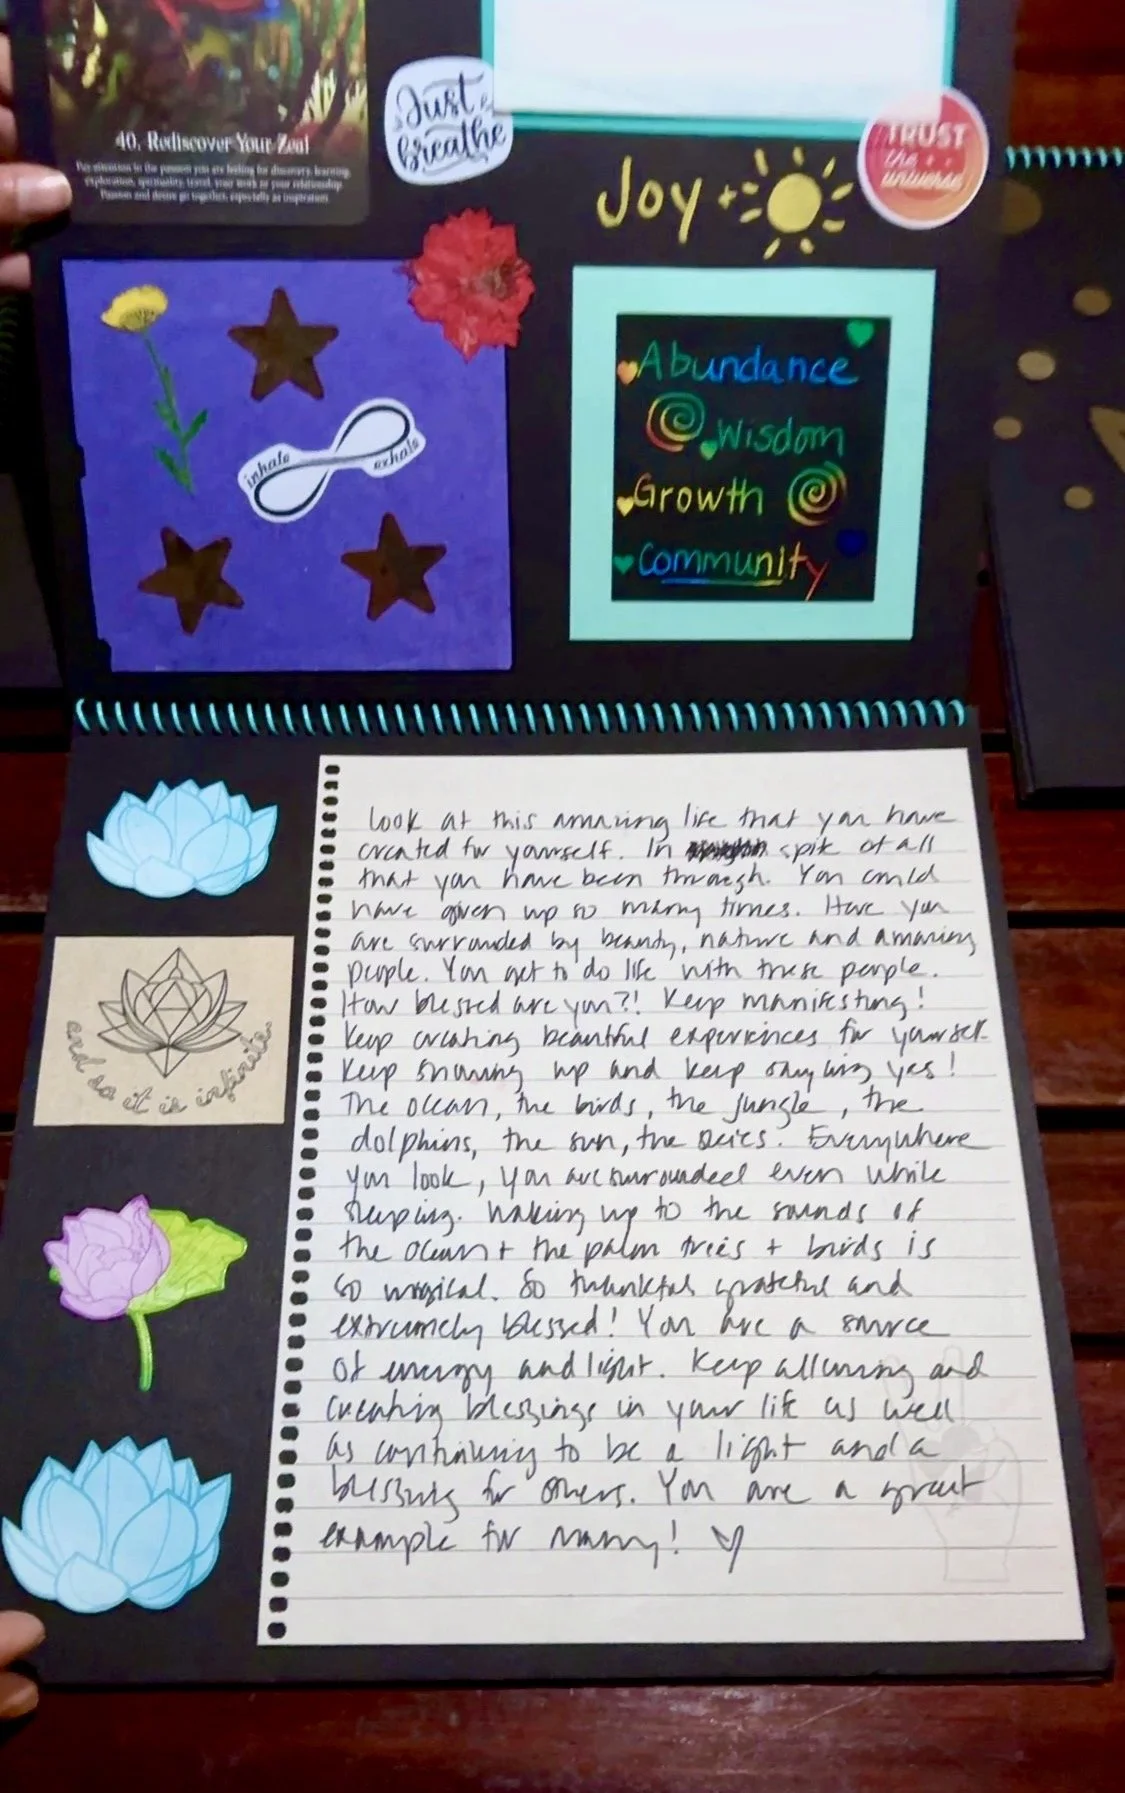 40. Rediscover Your Zeal
Pay attention to the passion you are feeling for discovery, learning,
exploration, spirituality, travel, your work or your relationship.
Passion and desire go together, especially as inspiration.
Just
breathe
TRUST
the
universe
Joy +
inhale
exhale
Abundance
Wisdom
Growth
Community
and so it is infinite
Look at this amazing life that you have
created for yourself. In spite of all
that you have been through. You could
have given up so many times. Here you
are surrounded by beauty, nature and amazing
people. You get to do life with these people.
How blessed are you?! Keep manifesting!
Keep creating beautiful experiences for yourself.
Keep showing up and keep saying yes!
The ocean, the birds, the jungle, the
dolphins, the sun, the skies. Everywhere
you look, you are surrounded even while
sleeping. Waking up to the sounds of
the ocean + the palm trees + birds is
so magical. So thankful grateful and
extremely blessed! You are a source
of energy and light. Keep allowing and
creating blessings in your life as well
as continuing to be a light and a
blessing for others. You are a great
example for many!